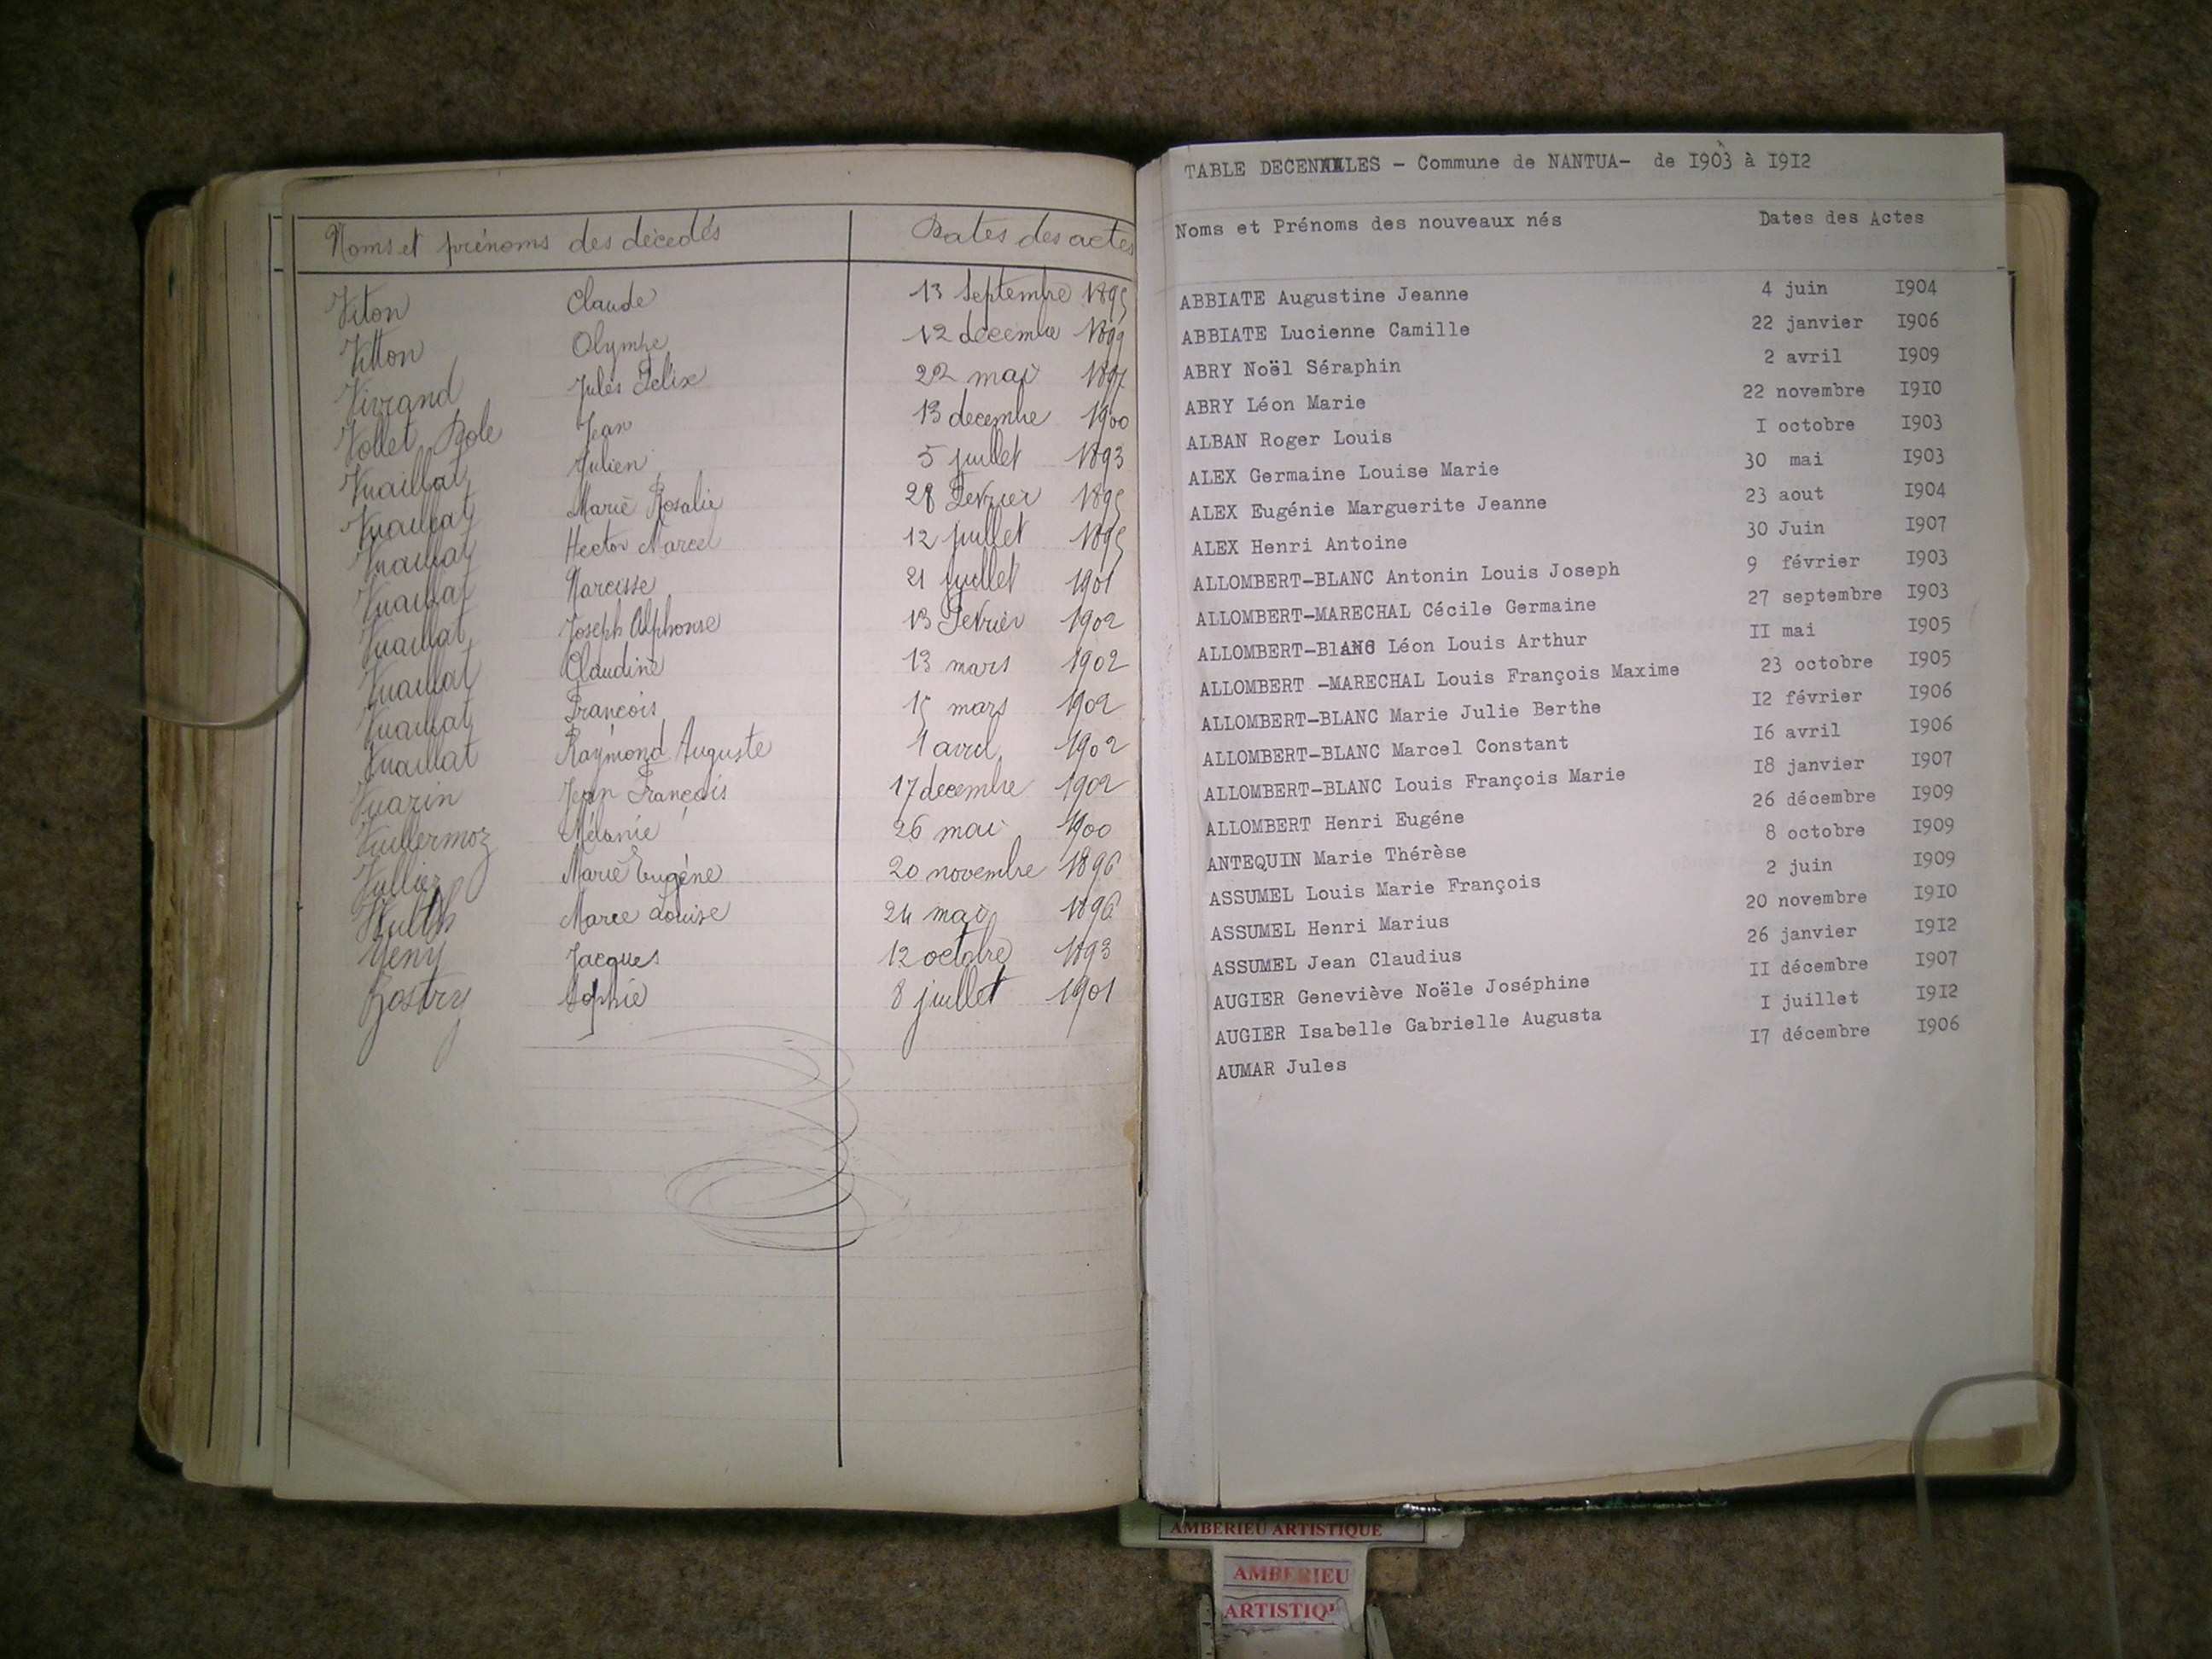 Noms et prénoms des décédés Dates des actes
Viton Claude 13 Septembre 1895
Vitton Olympe 12 decembre 1899
Vivrand Jules Félix 22 mai 1897
Vollet Dole Jean 13 decembre 1900
Vuaillat Julien 5 juillet 1893
Vuaillat Marie Rosalie 28 Fevrier 1895
Vuaillat Hector Marcel 12 juillet 1895
Vuaillat Narcisse 21 juillet 1901
Vuaillat Joseph Alphonse 13 Fevrier 1902
Vuaillat Claudine 13 mars 1902
Vuaillat François 15 mars 1902
Vuaillat Raymond Auguste 1 avril 1902
Vuarin Jean François 17 decembre 1902
Vuillermoz Mélanie 26 mai 1900
Vullier Marie Eugéne 20 novembre 1896
Marie Louise 24 mai 1896
Yeny Jacques 12 octobre 1893
Sophie 8 juillet 1901
TABLE DECENNALES - Commune de NANTUA- de I903 à I9I2
Noms et Prénoms des nouveaux nés Dates des Actes
ABBIATE Augustine Jeanne 4 juin I904
ABBIATE Lucienne Camille 22 janvier I906
ABRY Noël Séraphin 2 avril I909
ABRY Léon Marie 22 novembre I9I0
ALBAN Roger Louis I octobre I903
ALEX Germaine Louise Marie 30 mai I903
ALEX Eugénie Marguerite Jeanne 23 aout I904
ALEX Henri Antoine 30 Juin I907
ALLOMBERT-BLANC Antonin Louis Joseph 9 février I903
ALLOMBERT-MARECHAL Cécile Germaine 27 septembre I903
ALLOMBERT-BlANC Léon Louis Arthur II mai I905
ALLOMBERT -MARECHAL Louis François Maxime 23 octobre I905
ALLOMBERT-BLANC Marie Julie Berthe I2 février I906
ALLOMBERT-BLANC Marcel Constant I6 avril I906
ALLOMBERT-BLANC Louis François Marie I8 janvier I907
ALLOMBERT Henri Eugéne 26 décembre I909
ANTEQUIN Marie Thérèse 8 octobre I909
ASSUMEL Louis Marie François 2 juin I909
ASSUMEL Henri Marius 20 novembre I9I0
ASSUMEL Jean Claudius 26 janvier I9I2
AUGIER Geneviève Noële Joséphine II décembre I907
AUGIER Isabelle Gabrielle Augusta I juillet I9I2
AUMAR Jules I7 décembre I906
AMBERIEU ARTISTIQUE
AMBERIEU
ARTISTIQU